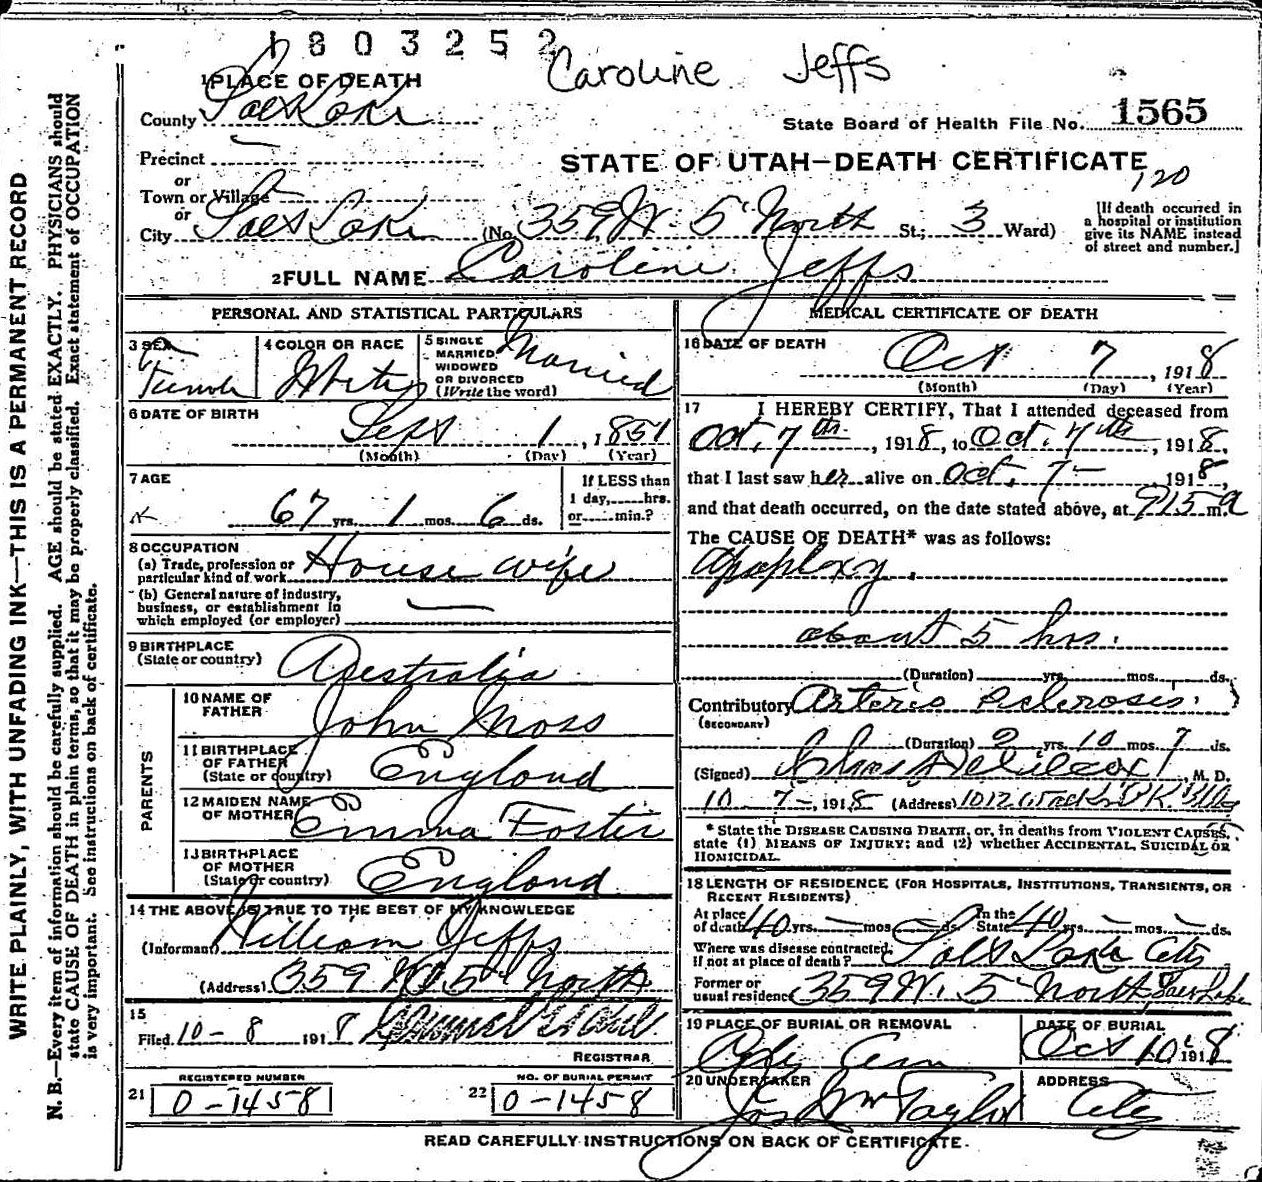 1803252
Caroline Jeffs
1 PLACE OF DEATH
County Salt Lake
State Board of Health File No. 1565
Precinct
or
STATE OF UTAH—DEATH CERTIFICATE
120
Town or Village
or
City Salt Lake (No. 359 W. 5" North St.; 3 Ward)
[If death occurred in
a hospital or institution
give its NAME instead
of street and number.]
2 FULL NAME Caroline Jeffs
PERSONAL AND STATISTICAL PARTICULARS
3 SEX
Female
4 COLOR OR RACE
White
5 SINGLE
MARRIED
WIDOWED
OR DIVORCED
(Write the word)
Married
6 DATE OF BIRTH
Sept 1, 1851
(Month) (Day) (Year)
7 AGE
67 yrs. 1 mos. 6 ds.
If LESS than
1 day, hrs.
or min.?
8 OCCUPATION
(a) Trade, profession or
particular kind of work House wife
(b) General nature of industry,
business, or establishment in
which employed (or employer)
9 BIRTHPLACE
(State or country) Australia
PARENTS
10 NAME OF
FATHER John Moss
11 BIRTHPLACE
OF FATHER
(State or country) England
12 MAIDEN NAME
OF MOTHER Emma Foster
13 BIRTHPLACE
OF MOTHER
(State or country) England
14 THE ABOVE IS TRUE TO THE BEST OF MY KNOWLEDGE
(Informant) William Jeffs
(Address) 359 W. 5" North
15
Filed 10-8 1918
REGISTRAR
REGISTERED NUMBER
21 0-1458
NO. OF BURIAL PERMIT
22 0-1458
MEDICAL CERTIFICATE OF DEATH
16 DATE OF DEATH
Oct 7, 1918
(Month) (Day) (Year)
17 I HEREBY CERTIFY, That I attended deceased from
Oct. 7th, 1918, to Oct. 7th, 1918,
that I last saw her alive on Oct. 7—, 1918,
and that death occurred, on the date stated above, at 915 m. a
The CAUSE OF DEATH* was as follows:
Apoplexy.
about 5 hrs.
(Duration) yrs. mos. ds.
Contributory Arterio sclerosis.
(SECONDARY)
(Duration) 2 yrs. 10 mos. 7 ds.
(Signed) Chas F Wilcox, M. D.
10-7-, 1918 (Address) 1012 Walker Bk. Bldg
* State the DISEASE CAUSING DEATH, or, in deaths from VIOLENT CAUSES,
state (1) MEANS OF INJURY; and (2) whether ACCIDENTAL, SUICIDAL OR
HOMICIDAL.
18 LENGTH OF RESIDENCE (FOR HOSPITALS, INSTITUTIONS, TRANSIENTS, OR
RECENT RESIDENTS)
At place
of death 40 yrs. — mos. — ds. In the
State 40 yrs. — mos. — ds.
Where was disease contracted,
if not at place of death? Salt Lake City
Former or
usual residence 359 W. 5" North Salt Lake
19 PLACE OF BURIAL OR REMOVAL
City Cem
DATE OF BURIAL
Oct 10, 1918
20 UNDERTAKER
Jos Wm Taylor
ADDRESS
City
READ CAREFULLY INSTRUCTIONS ON BACK OF CERTIFICATE.
WRITE PLAINLY, WITH UNFADING INK—THIS IS A PERMANENT RECORD
N. B.—Every item of information should be carefully supplied. AGE should be stated EXACTLY. PHYSICIANS should
state CAUSE OF DEATH in plain terms, so that it may be properly classified. Exact statement of OCCUPATION
is very important. See instructions on back of certificate.